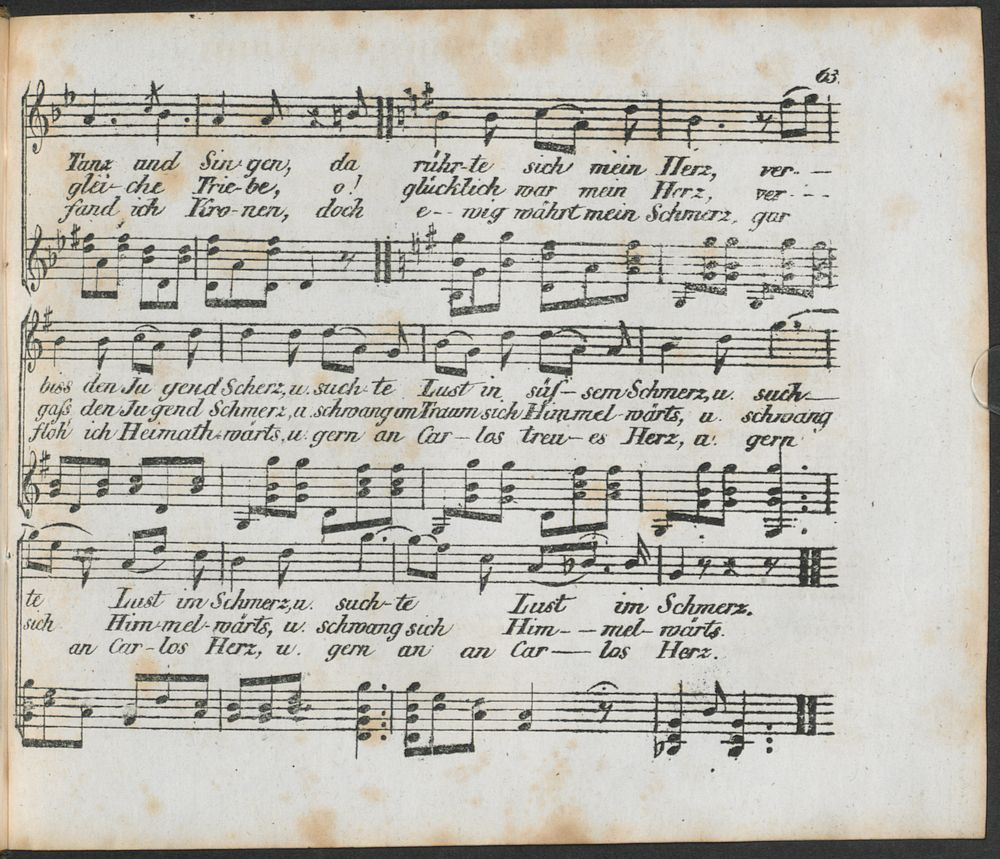 63.
Tanz und Sin-gen, da rühr-te sich mein Herz, ver-
glei-che Trie-be, o! glücklich war mein Herz, ver-
fand ich Kro-nen, doch e--wig währt mein Schmerz, gar
biss den Ju gend Scherz, u. such-te Lust in süs-sem Schmerz, u. such-
gass den Ju gend Schmerz, u. schwang im Traum sich Himmel-wärts, u. schwang
floh ich Heimath-wärts, u. gern an Car-los treu-es Herz, u. gern
te Lust im Schmerz, u. such-te Lust im Schmerz.
sich Him-mel-wärts, u. schwang sich Him--mel-wärts.
an Car-los Herz, u. gern an an Car-los Herz.